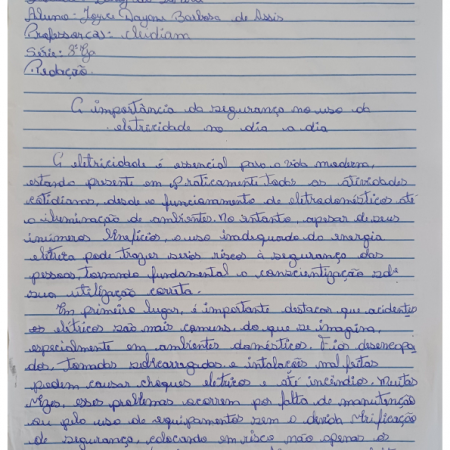 Aluno: Joyce Dayane Barbosa de Assis
Professoras: cludiam
Série: 3º
Redação.
A importância da segurança no uso da
eletricidade no dia a dia
A eletricidade é essencial para a vida moderna,
estando presente em praticamente todas as atividades
cotidianas, desde o funcionamento de eletrodomésticos até
a iluminação de ambientes. No entanto, apesar de seus
inúmeros benefícios, o uso inadequado da energia
elétrica pode trazer serios riscos à segurança das
pessoas, tornando fundamental a conscientização
sua utilização correta.
Em primeiro lugar, é importante destacar que acidentes
os elétricos são mais comuns do que se imagina,
especialmente em ambientes domésticos. Fios desencapa
dos, tomadas sobrecarregadas e instalações mal feitas
podem causar choques eletricos e até incêndios. Muitas
vezes, esses problemas ocorrem por falta de manutenção
ou pelo uso de equipamentos sem a devida verificação
de segurança, colocando em risco não apenas os